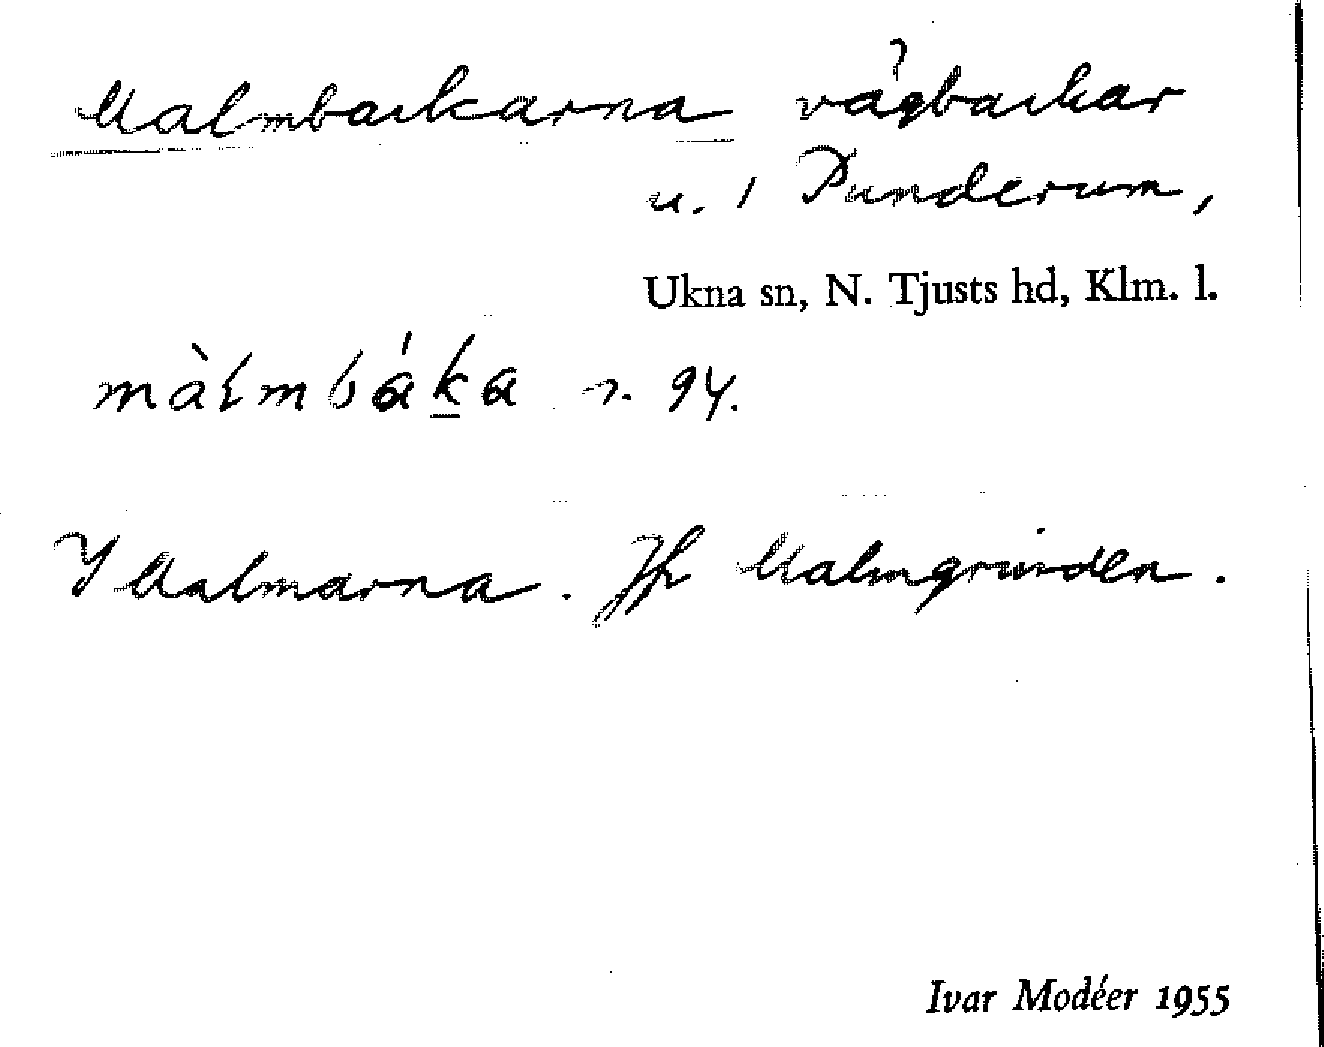 Malmbackarna vägbackar
u. 1 Punderum,
Ukna sn, N. Tjusts hd, Klm. l.
màłmbáka 94.
I Malmarna. Jfr Malmgrinden.
Ivar Modéer 1955